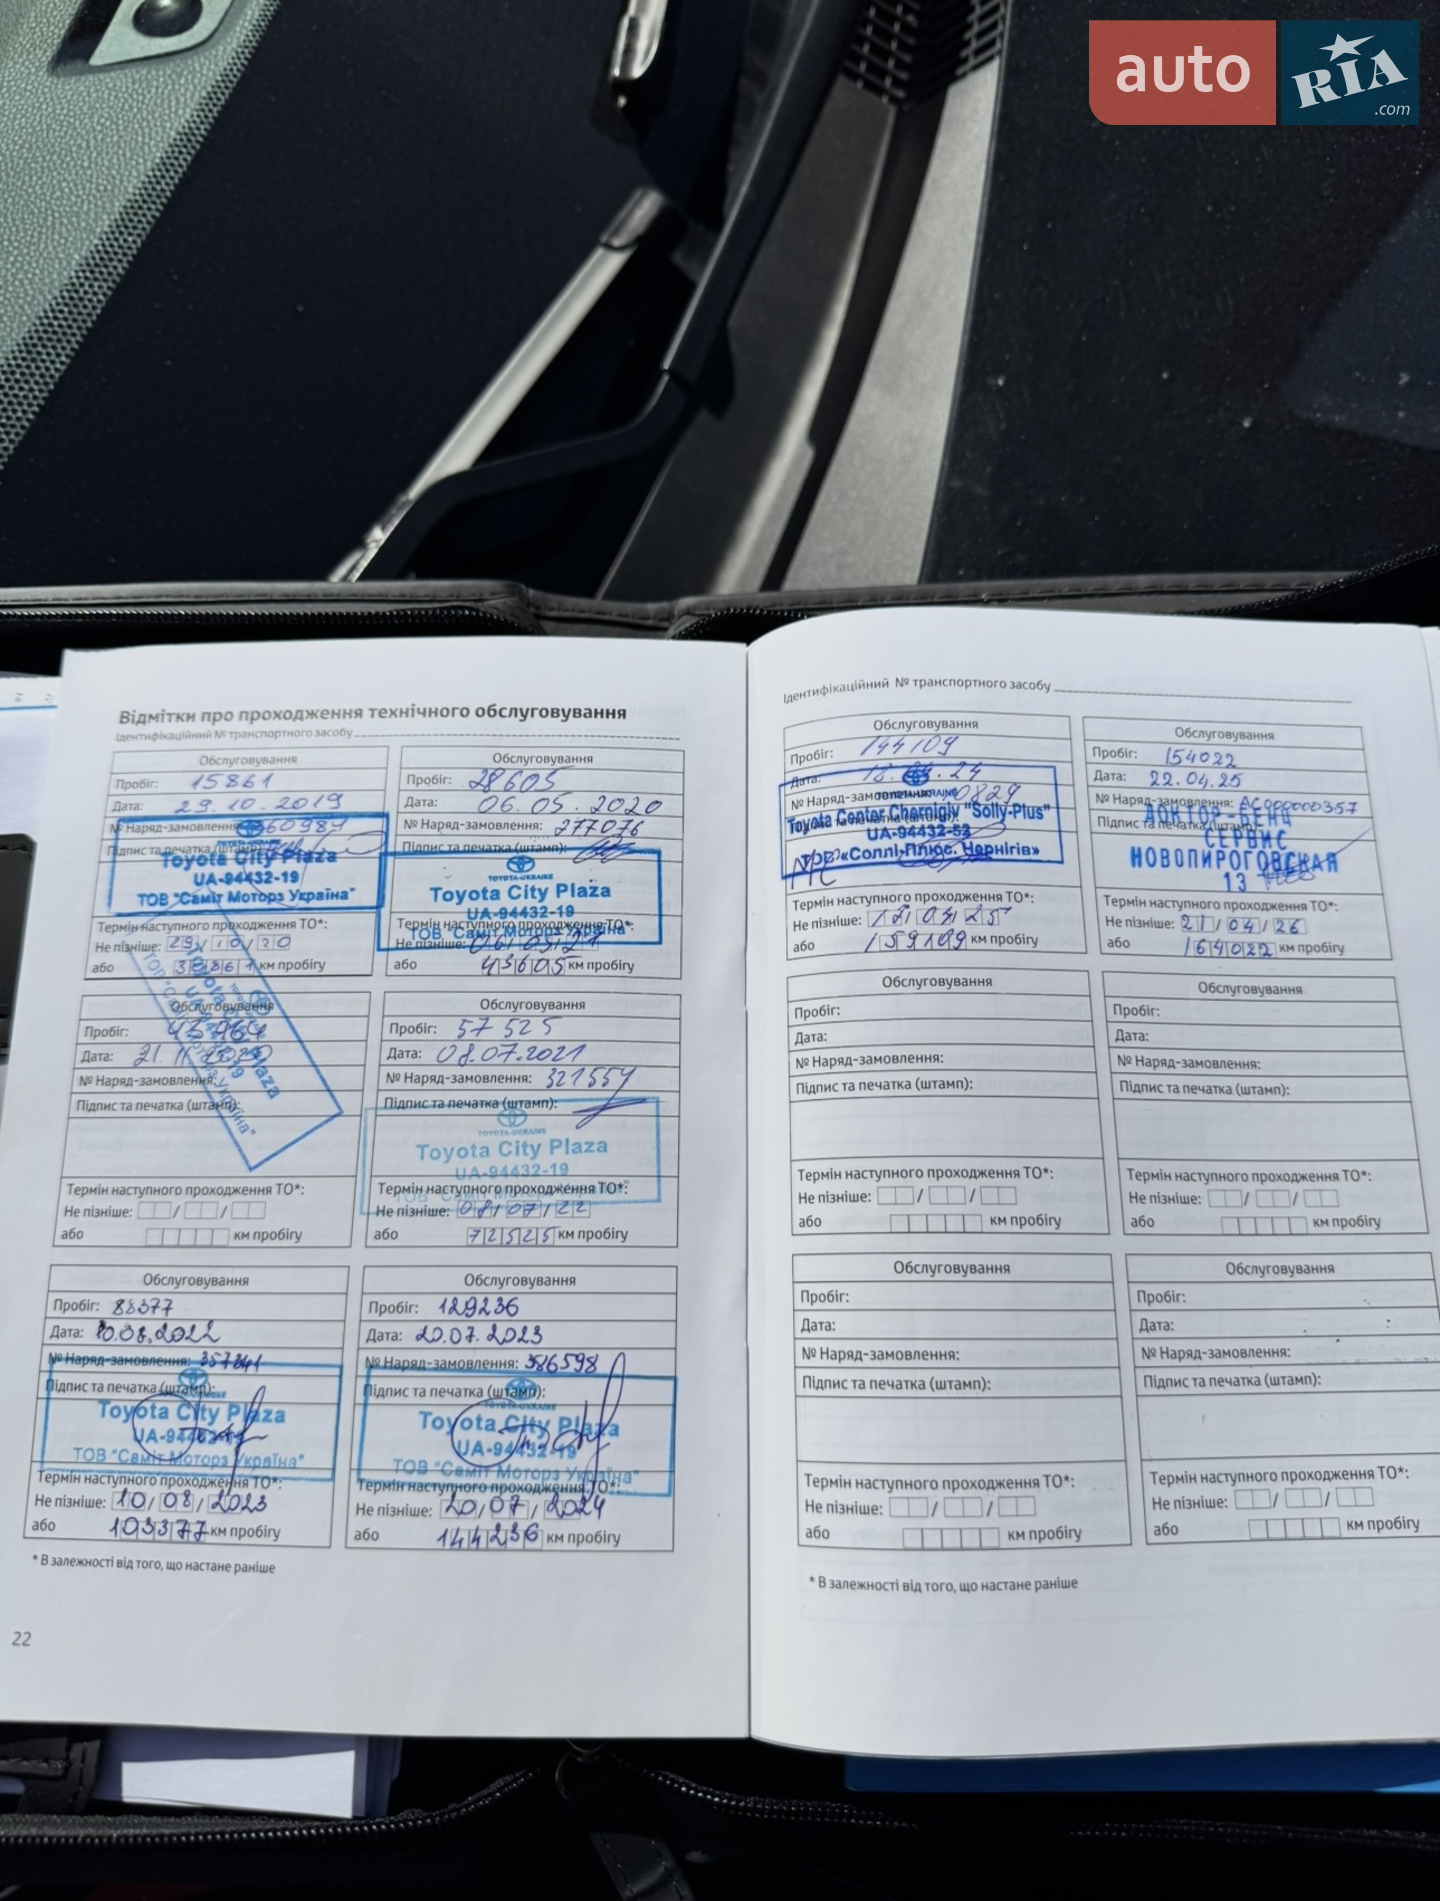 auto RIA
.com
Відмітки про проходження технічного обслуговування
Ідентифікаційний № транспортного засобу
Обслуговування
Пробіг: 15861
Дата: 29.10.2019
№ Наряд-замовлення:
Підпис та печатка (штамп):
Toyota City Plaza
UA-94432-19
ТОВ "Саміт Моторз Україна"
Термін наступного проходження ТО*:
Не пізніше: 29/10/20
або км пробігу
Обслуговування
Пробіг: 28605
Дата: 06.05.2020
№ Наряд-замовлення: 277076
Підпис та печатка (штамп):
TOYOTA-UKRAINE
Toyota City Plaza
UA-94432-19
ТОВ "Саміт Моторз Україна"
Термін наступного проходження ТО*:
Не пізніше: 06/05/21
або 43605 км пробігу
Обслуговування
Пробіг:
Дата:
№ Наряд-замовлення:
Підпис та печатка (штамп):
Термін наступного проходження ТО*:
Не пізніше: / /
або км пробігу
Обслуговування
Пробіг: 57525
Дата: 08.07.2021
№ Наряд-замовлення: 321554
Підпис та печатка (штамп):
TOYOTA-UKRAINE
Toyota City Plaza
UA-94432-19
Термін наступного проходження ТО*:
Не пізніше: 08/07/22
або 72525 км пробігу
Обслуговування
Пробіг: 88377
Дата: 10.08.2022
№ Наряд-замовлення:
Підпис та печатка (штамп):
Toyota City Plaza
ТОВ "Саміт Моторз Україна"
Термін наступного проходження ТО*:
Не пізніше: 10/08/2023
або 103377 км пробігу
Обслуговування
Пробіг: 129236
Дата: 20.07.2023
№ Наряд-замовлення: 386598
Підпис та печатка (штамп):
TOYOTA-UKRAINE
Toyota City Plaza
UA-94432-19
ТОВ "Саміт Моторз Україна"
Термін наступного проходження ТО*:
Не пізніше: 20/07/2024
або 144236 км пробігу
* В залежності від того, що настане раніше
22
Ідентифікаційний № транспортного засобу
Обслуговування
Пробіг: 144109
Дата:
№ Наряд-замовлення:
Toyota Center Chernigiv "Solly-Plus"
UA-94432-52
ТОВ «Соллі-Плюс. Чернігів»
Термін наступного проходження ТО*:
Не пізніше:
або 159109 км пробігу
Обслуговування
Пробіг: 154022
Дата: 22.04.25
№ Наряд-замовлення: АС000000357
Підпис та печатка (штамп):
ДОКТОР-БЕНЦ
СЕРВИС
НОВОПИРОГОВСКАЯ
13
Термін наступного проходження ТО*:
Не пізніше: 21/04/26
або 164022 км пробігу
Обслуговування
Пробіг:
Дата:
№ Наряд-замовлення:
Підпис та печатка (штамп):
Термін наступного проходження ТО*:
Не пізніше: / /
або км пробігу
Обслуговування
Пробіг:
Дата:
№ Наряд-замовлення:
Підпис та печатка (штамп):
Термін наступного проходження ТО*:
Не пізніше: / /
або км пробігу
Обслуговування
Пробіг:
Дата:
№ Наряд-замовлення:
Підпис та печатка (штамп):
Термін наступного проходження ТО*:
Не пізніше: / /
або км пробігу
Обслуговування
Пробіг:
Дата:
№ Наряд-замовлення:
Підпис та печатка (штамп):
Термін наступного проходження ТО*:
Не пізніше: / /
або км пробігу
* В залежності від того, що настане раніше